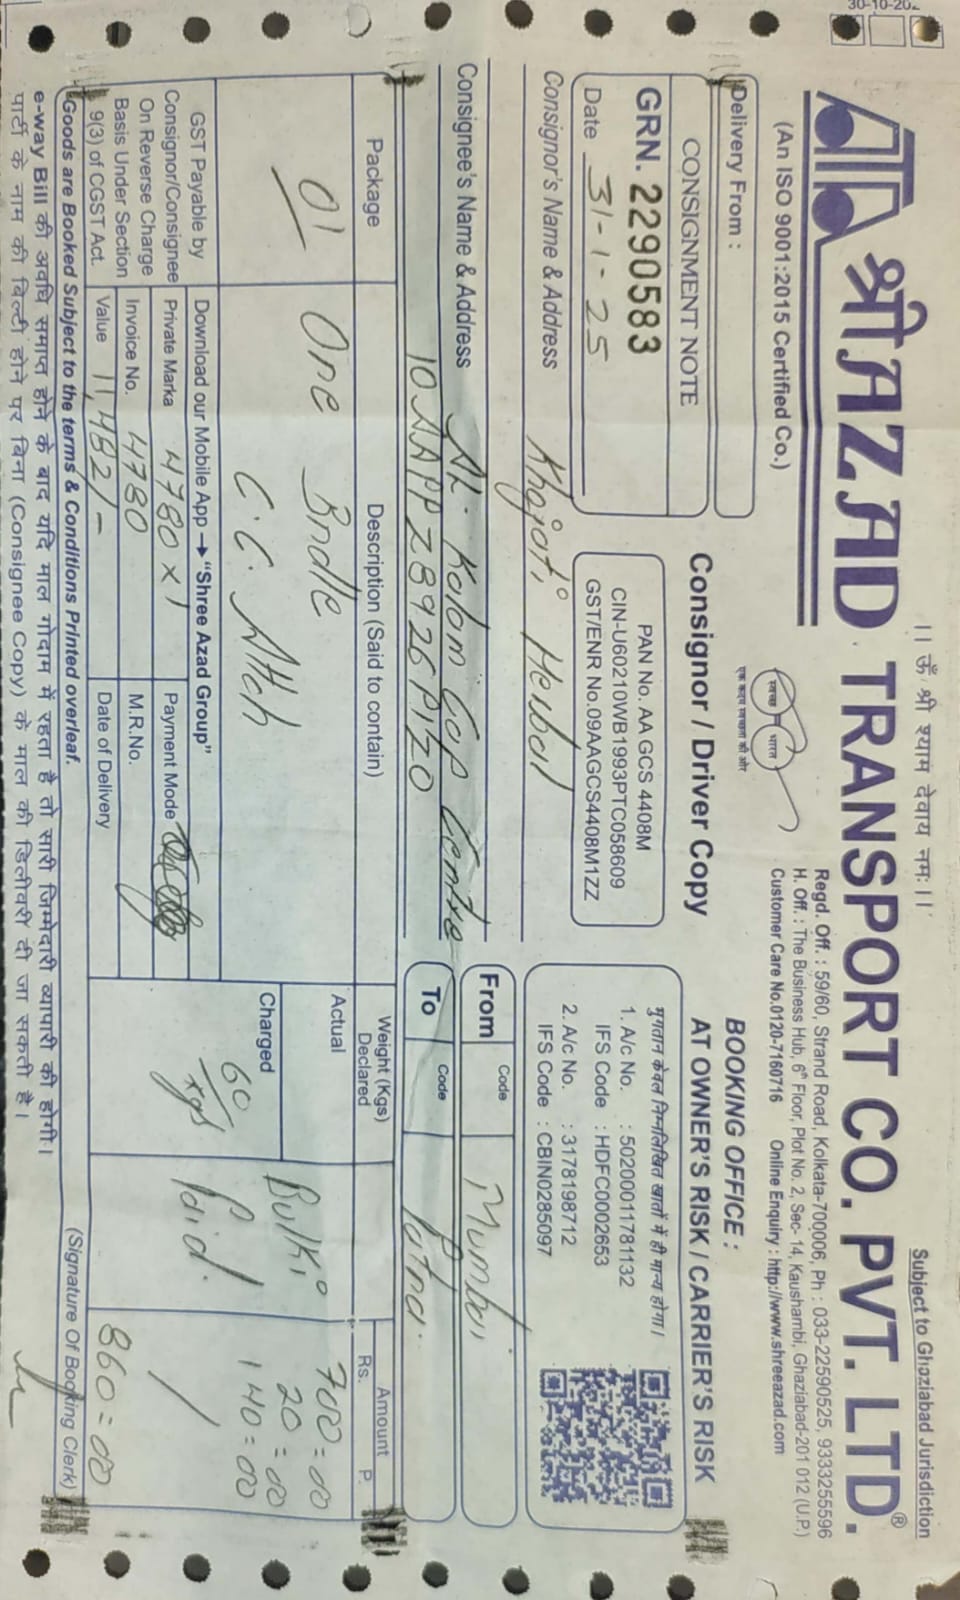 30-10-202
।। ॐ श्री श्याम देवाय नमः।।
Subject to Ghaziabad Jurisdiction
श्री AZAD TRANSPORT CO. PVT. LTD.®
(An ISO 9001:2015 Certified Co.)
स्वच्छ भारत
एक कदम स्वच्छता की ओर
Regd. Off. : 59/60, Strand Road, Kolkata-700006, Ph : 033-22590525, 9333255596
H. Off. : The Business Hub, 6th Floor, Plot No. 2, Sec- 14, Kaushambi, Ghaziabad-201 012 (U.P.)
Customer Care No.0120-7160716 Online Enquiry : http://www.shreeazad.com
Delivery From :
Consignor / Driver Copy
BOOKING OFFICE :
AT OWNER'S RISK / CARRIER'S RISK
CONSIGNMENT NOTE
GRN. 2290583
Date 31-1-25
PAN No. AA GCS 4408M
CIN-U60210WB1993PTC058609
GST/ENR No.09AAGCS4408M1ZZ
भुगतान केवल निम्नलिखित खातों में ही मान्य होगा।
1. A/c No. : 50200011781132
IFS Code : HDFC0002653
2. A/c No. : 3178198712
IFS Code : CBIN0285097
Consignor's Name & Address Khajati Herbal
From Code Mumbai
Consignee's Name & Address Sh. Kolom Gap Centre
10AAPPZ8926P1Z0
To Code Patna.
Package
Description (Said to contain)
Weight (Kgs) Declared
Amount
Rs. P.
01
One Bndle
C.C. Attch
Actual
Charged 60 kgs
Bulki
Paid.
700=00
20=00
140=00
860=00
GST Payable by
Consignor/Consignee
On Reverse Charge
Basis Under Section
9(3) of CGST Act.
Download our Mobile App → "Shree Azad Group"
Private Marka 4780 x 1
Payment Mode
Invoice No. 4780
M.R.No.
Value 11,482/-
Date of Delivery
Goods are Booked Subject to the terms & Conditions Printed overleaf.
(Signature Of Booking Clerk)
e-way Bill की अवधि समाप्त होने के बाद यदि माल गोदाम में रहता है तो सारी जिम्मेदारी व्यापारी की होगी।
पार्टी के नाम की बिल्टी होने पर बिना (Consignee Copy) के माल की डिलीवरी दी जा सकती है।